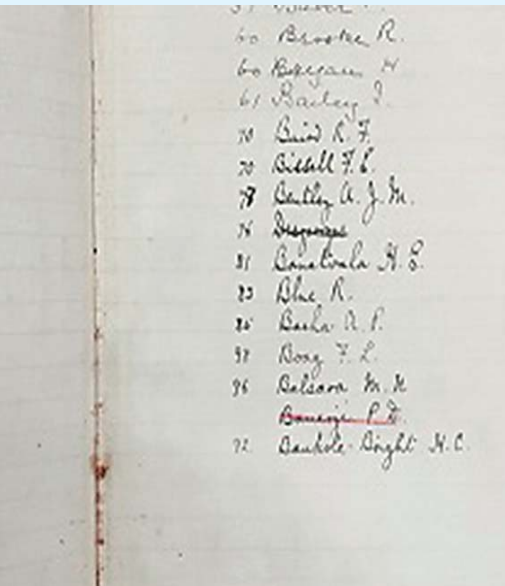 60 Brooke R.
60 H
61 Bailey J.
70 Baird R. F.
70 Bissell F. E.
78 Bentley A. J. M.
76
81 Banatvala H. E.
83 Blue R.
85 Basha A. P.
Boag F. L.
96 Balsara M. N
Banerji P.
92 Bankole-Bright H. C.